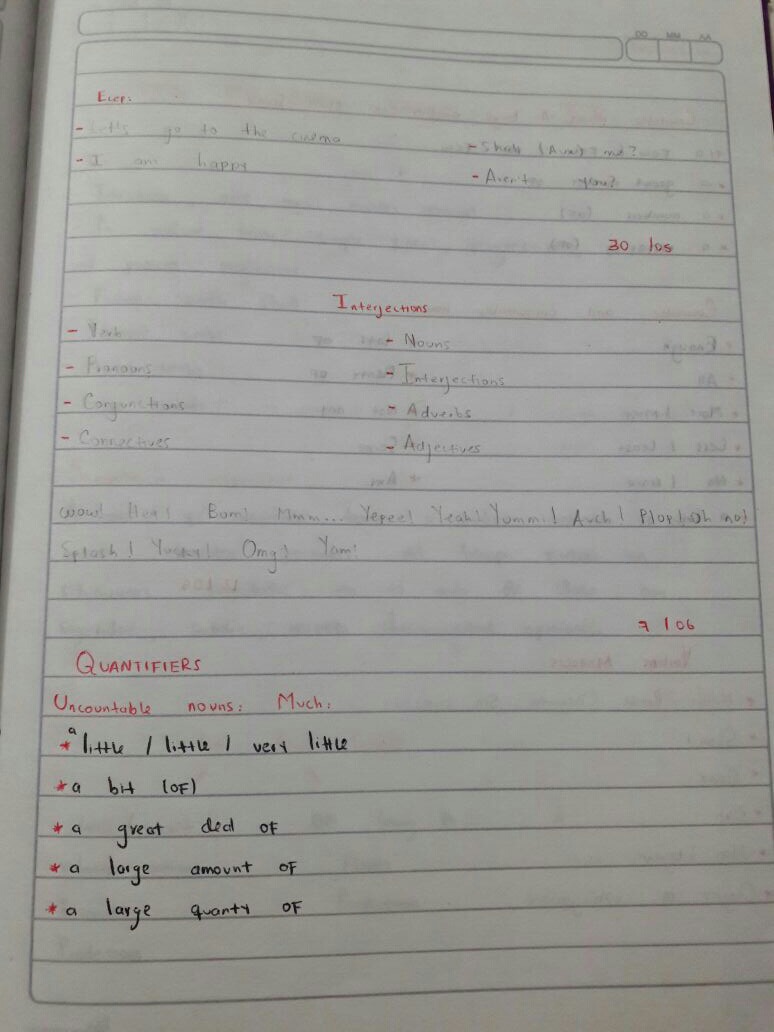 DD MM AA
Ecep:
- Let's go to the cinema
- I am happy
- Shall (Aux) I me?
- Aren't you?
30 / 05
Interjections
- Verb
- Nouns
- Pronouns
- Interjections
- Conjunctions
- Adverbs
- Connectives
- Adjectives
Wow! Hea! Bom! Mmm... Yepee! Yeah! Yumm! Auch! Plop! Oh no!
Splash! Yucky! Omg! Yam!
7 / 06
QUANTIFIERS
Uncountable nouns: Much:
* a little / little / very little
* a bit (OF)
* a great deal OF
* a large amount OF
* a large quanty OF